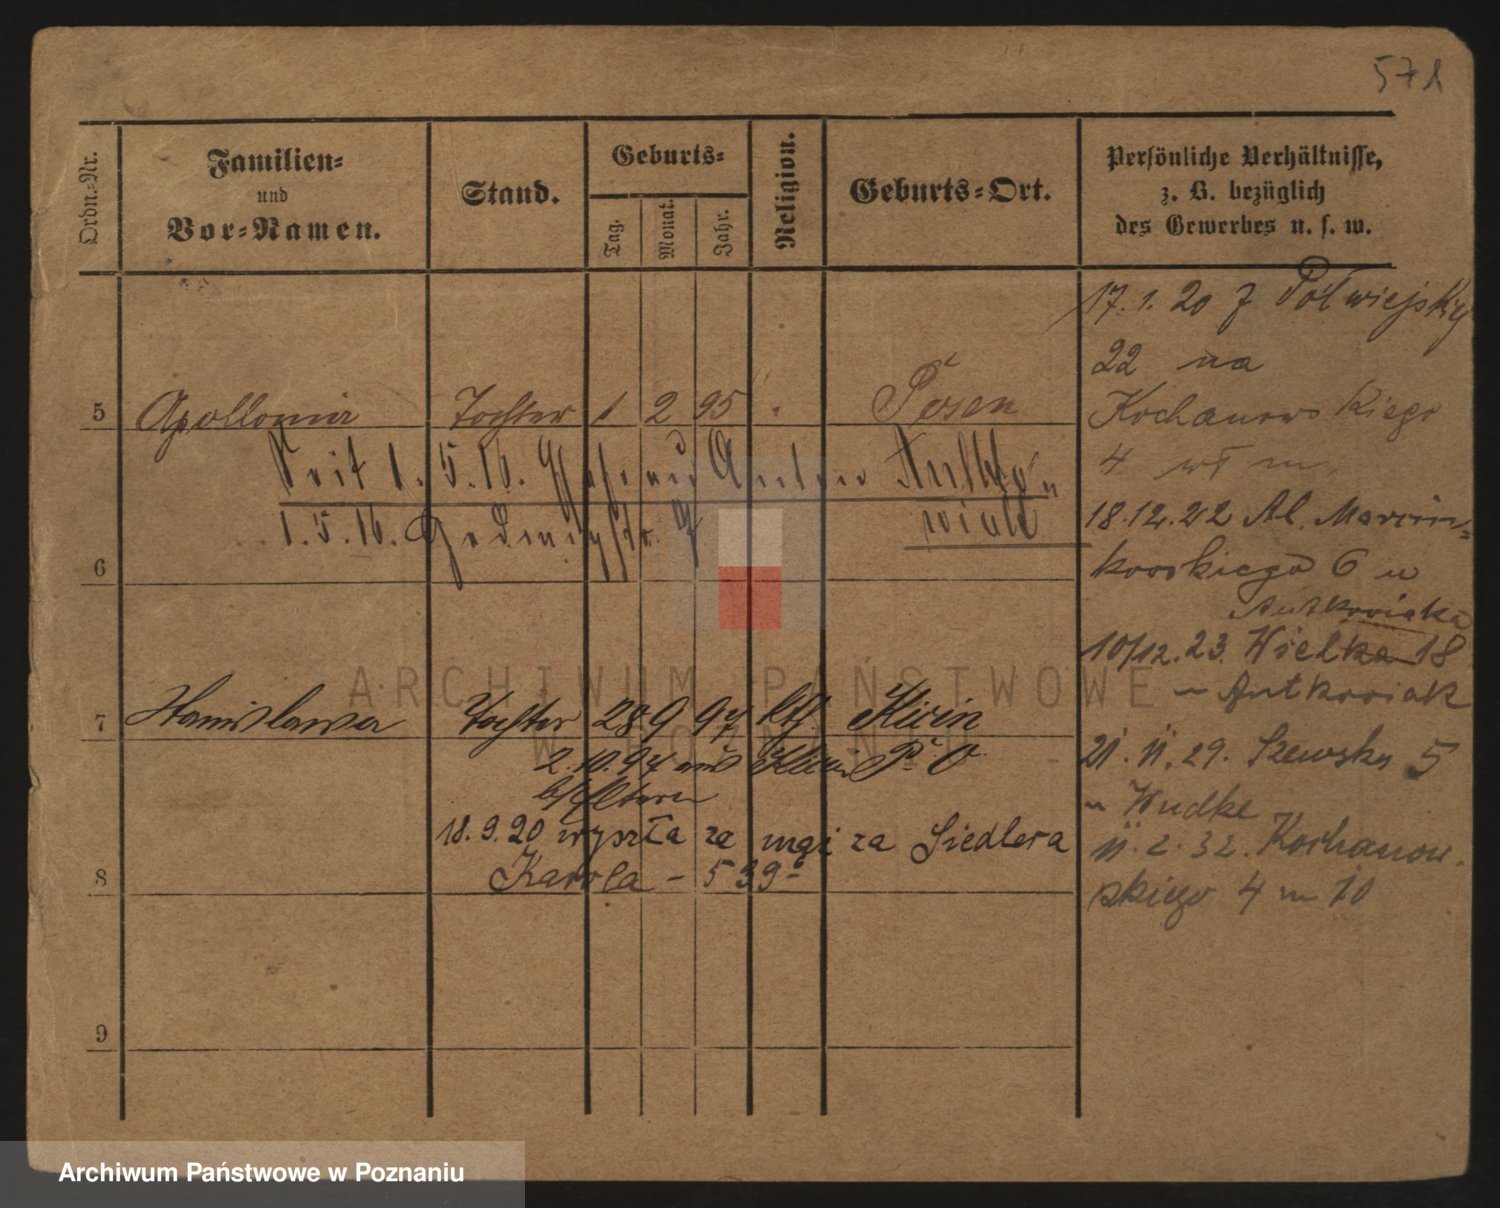 571
Ordn.-Nr.
Familien-
und
Vor-Namen.
Stand.
Geburts-
Tag.
Monat.
Jahr.
Religion.
Geburts-Ort.
Persönliche Verhältnisse,
z. B. bezüglich
des Gewerbes u. s. w.
5 Apollonia Tochter 1 2 95 Posen
Seit 1.5.16. Ehefrau Anton Antko-
wiak
1.5.16.
6
7 Stanislawa Tochter 28 9 97 kth
2.10.97 aus
b/ Eltern
18.9.20 wyszła za mąż za Siedlera
Karola – 539
8
9
17.1.20 z Półwiejskiej
22 na
Kochanowskiego
4
18.12.22 Al. Marcin-
kowskiego 6 u
Antkowiaka
10/12.23. Wielka 18
u Antkowiak
21.11.29. Szewska 5
u Wudke
11.2.32. Kochanow-
skiego 4 m 10
ARCHIWUM PAŃSTWOWE
W POZNANIU
Archiwum Państwowe w Poznaniu